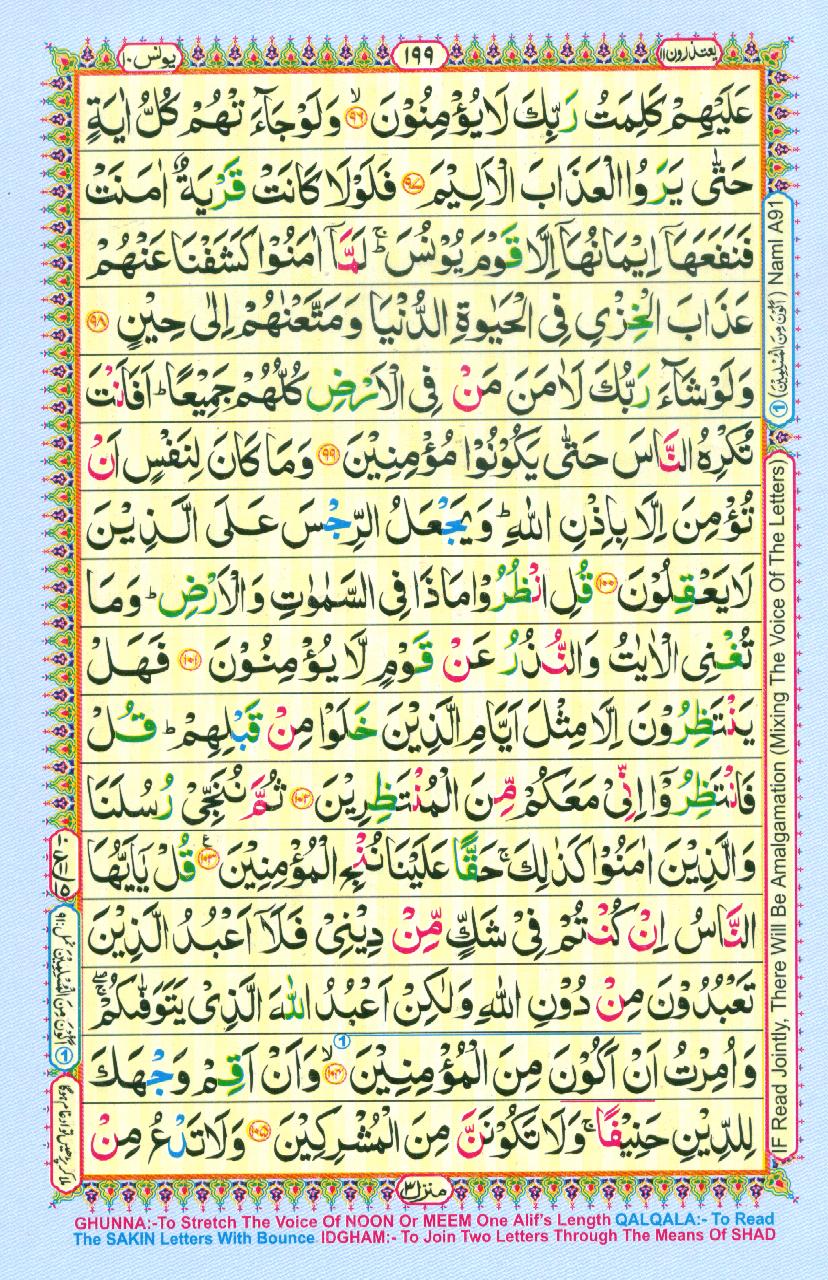 یعتذرون ۱۱
۱۹۹
یونس ۱۰
عَلَیْهِمْ كَلِمَتُ رَبِّكَ لَا یُؤْمِنُوْنَ ۙ﴿۹۶﴾ وَلَوْ جَآءَتْهُمْ كُلُّ اٰیَةٍ
حَتّٰی یَرَوُا الْعَذَابَ الْاَلِیْمَ ﴿۹۷﴾ فَلَوْلَا كَانَتْ قَرْیَةٌ اٰمَنَتْ
فَنَفَعَهَاۤ اِیْمَانُهَاۤ اِلَّا قَوْمَ یُوْنُسَ ؕ لَمَّاۤ اٰمَنُوْا كَشَفْنَا عَنْهُمْ
عَذَابَ الْخِزْیِ فِی الْحَیٰوةِ الدُّنْیَا وَمَتَّعْنٰهُمْ اِلٰی حِیْنٍ ﴿۹۸﴾
وَلَوْ شَآءَ رَبُّكَ لَاٰمَنَ مَنْ فِی الْاَرْضِ كُلُّهُمْ جَمِیْعًا ؕ اَفَاَنْتَ
تُكْرِهُ النَّاسَ حَتّٰی یَكُوْنُوْا مُؤْمِنِیْنَ ﴿۹۹﴾ وَمَا كَانَ لِنَفْسٍ اَنْ
تُؤْمِنَ اِلَّا بِاِذْنِ اللّٰهِ ؕ وَیَجْعَلُ الرِّجْسَ عَلَی الَّذِیْنَ
لَا یَعْقِلُوْنَ ﴿۱۰۰﴾ قُلِ انْظُرُوْا مَاذَا فِی السَّمٰوٰتِ وَالْاَرْضِ ؕ وَمَا
تُغْنِی الْاٰیٰتُ وَالنُّذُرُ عَنْ قَوْمٍ لَّا یُؤْمِنُوْنَ ﴿۱۰۱﴾ فَهَلْ
یَنْتَظِرُوْنَ اِلَّا مِثْلَ اَیَّامِ الَّذِیْنَ خَلَوْا مِنْ قَبْلِهِمْ ؕ قُلْ
فَانْتَظِرُوْۤا اِنِّیْ مَعَكُمْ مِّنَ الْمُنْتَظِرِیْنَ ﴿۱۰۲﴾ ثُمَّ نُنَجِّیْ رُسُلَنَا
وَالَّذِیْنَ اٰمَنُوْا كَذٰلِكَ ۚ حَقًّا عَلَیْنَا نُنْجِ الْمُؤْمِنِیْنَ ﴿۱۰۳﴾ قُلْ یٰۤاَیُّهَا
النَّاسُ اِنْ كُنْتُمْ فِیْ شَكٍّ مِّنْ دِیْنِیْ فَلَاۤ اَعْبُدُ الَّذِیْنَ
تَعْبُدُوْنَ مِنْ دُوْنِ اللّٰهِ وَلٰكِنْ اَعْبُدُ اللّٰهَ الَّذِیْ یَتَوَفّٰىكُمْ ۖۚ
وَاُمِرْتُ اَنْ اَكُوْنَ مِنَ الْمُؤْمِنِیْنَ ۙ﴿۱۰۴﴾ ① وَاَنْ اَقِمْ وَجْهَكَ
لِلدِّیْنِ حَنِیْفًا ۚ وَلَا تَكُوْنَنَّ مِنَ الْمُشْرِكِیْنَ ﴿۱۰۵﴾ وَلَا تَدْعُ مِنْ
منزل ۳
① (اَكُوْنَ مِنَ الْمُسْلِمِیْنَ) Naml A91
IF Read Jointly, There Will Be Amalgamation (Mixing The Voice Of The Letters)
① اَكُوْنَ مِنَ الْمُسْلِمِیْنَ نمل:۹۱
ملا کر پڑھیں تو ادغام ہوگا
GHUNNA:-To Stretch The Voice Of NOON Or MEEM One Alif's Length QALQALA:- To Read
The SAKIN Letters With Bounce IDGHAM:- To Join Two Letters Through The Means Of SHAD